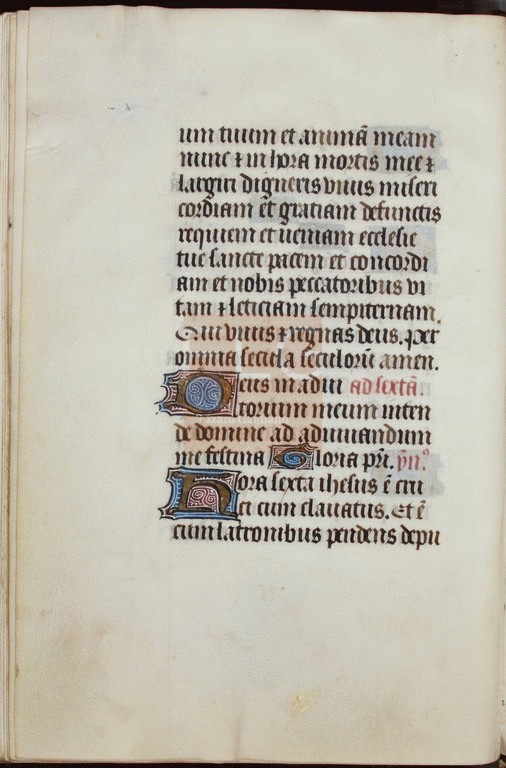 um tuum et animā meam
nunc ⁊ in hora mortis mee ⁊
largiri digneris vivis miseri
cordiam et gratiam defunctis
requiem et ueniam ecclesie
tue sancte pacem et concordi
am et nobis peccatoribus vi
tam ⁊ leticiam sempiternam.
Qui vivis ⁊ regnas deus. per
omnia secula seculorū amen.
Deus in adiu ad sextā.
torium meum inten
de domine ad adiuuandum
me festina Gloria pr̄i. yn̄⁹
Hora sexta ihesus ē cru
ci cum clauatus. Et ē
cum latronibus pendens depu